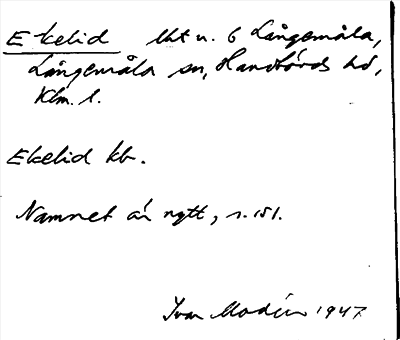 Ekelid lht u. 6 Långemåla,
Långemåla sn, Handbörds hd,
Klm. l.
Ekelid kb.
Namnet är nytt, s. 151.
Ivar Modéer 1947.